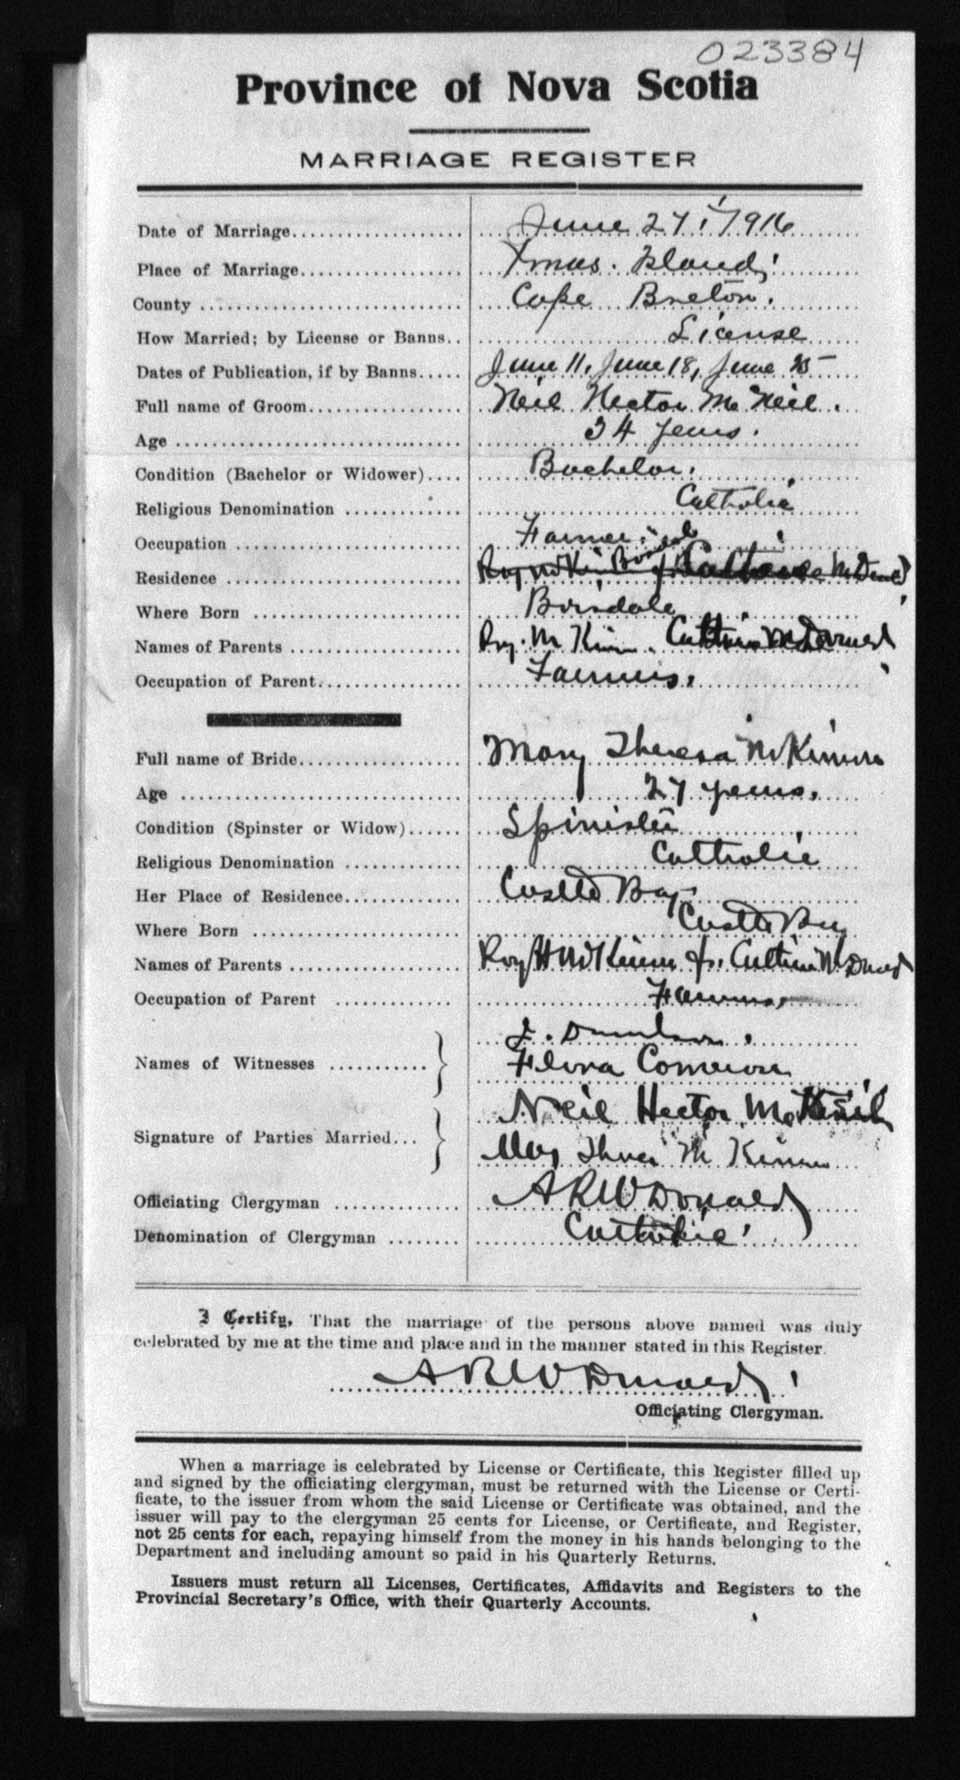 023384
Province of Nova Scotia
MARRIAGE REGISTER
Date of Marriage June 27, 1916
Place of Marriage Xmas. Island,
County Cape Breton.
How Married; by License or Banns License
Dates of Publication, if by Banns June 11, June 18, June 25
Full name of Groom Neil Hector McNeil.
Age 34 years.
Condition (Bachelor or Widower) Bachelor.
Religious Denomination Catholic
Occupation Farmer
Residence
Where Born Boisdale
Names of Parents
Occupation of Parent Farmers.
Full name of Bride Mary Theresa McKinnon
Age 27 years.
Condition (Spinster or Widow) Spinister
Religious Denomination Catholic
Her Place of Residence Castle Bay
Where Born Castle Bay
Names of Parents Catherine McDonald
Occupation of Parent Farmers
Names of Witnesses
Flora Cameron
Signature of Parties Married Neil Hector McNeil
McKinnon
Officiating Clergyman A R McDonald
Denomination of Clergyman Catholic
I Certify, That the marriage of the persons above named was duly
celebrated by me at the time and place and in the manner stated in this Register.
A R McDonald
Officiating Clergyman.
When a marriage is celebrated by License or Certificate, this Register filled up
and signed by the officiating clergyman, must be returned with the License or Certi-
ficate, to the issuer from whom the said License or Certificate was obtained, and the
issuer will pay to the clergyman 25 cents for License, or Certificate, and Register,
not 25 cents for each, repaying himself from the money in his hands belonging to the
Department and including amount so paid in his Quarterly Returns.
Issuers must return all Licenses, Certificates, Affidavits and Registers to the
Provincial Secretary's Office, with their Quarterly Accounts.